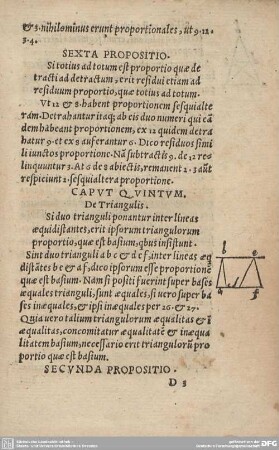 & 3. nihilominus erunt proportionales, ut 9. 12.
3. 4.
SEXTA PROPOSITIO.
Si totius ad totum est proportio quæ de
tracti ad detractum, erit residui etiam ad
residuum proportio, quæ totius ad totum.
Vt 12 & 8. habent proportionem sesquialte
ram. Detrahantur itaq; ab eis duo numeri qui eã
dem habeant proportionem, ex 12 quidem detra
hatur 9. et ex 8 auferantur 6. Dico residuos simi
li iunctos proportione. Nã subtractis 9. de, 12 re
linquuntur 3. At 6 de 8 abiectis, remanent 2. 3 aũt
respiciunt 2. sesquialtera proportione.
CAPVT QVINTVM.
De Triangulis.
Si duo trianguli ponantur inter lineas
æquidistantes, erit ipsorum triangulorum
proportio, quæ est basium, qbus insistunt.
Sint duo trianguli a b & d e f, inter lineas æq
distãtes b e & a f, dico ipsorum esse proportionẽ
quæ est basium. Nam si positi fuerint super bases
æquales trianguli, sunt æquales, si uero super ba
ses inæquales, & ipsi inæquales per 26 & 27.
Quia uero talium triangulorum æqualitas & ĩ
æqualitas, concomitatur æqualitatẽ & inæqua
litatem basium, necessario erit triangulorũ pro
portio quæ est basium.
b e
a d c f
SECVNDA PROPOSITIO.
D 3